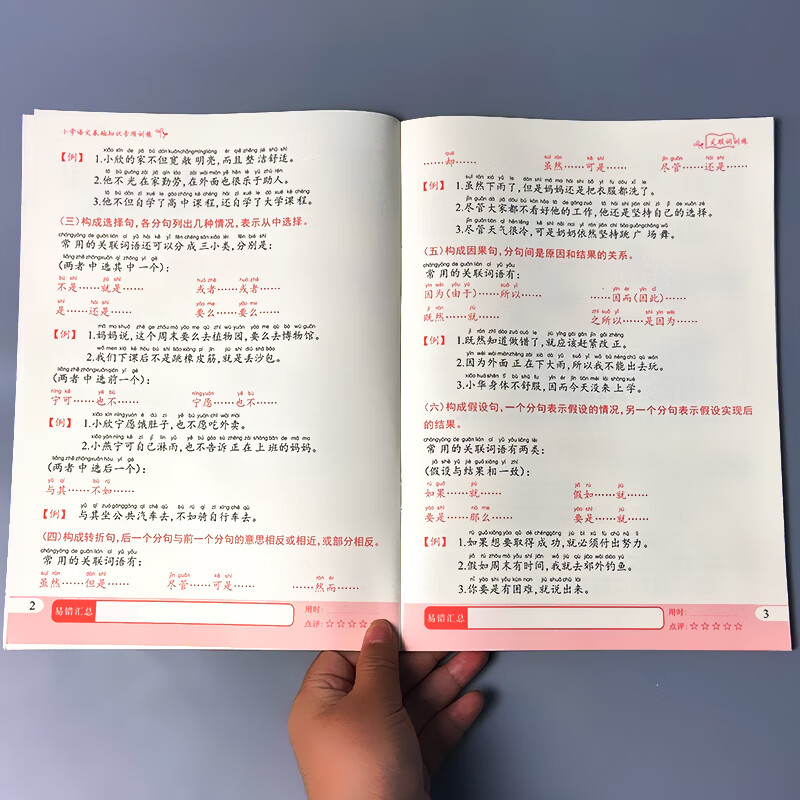 小学语文基础知识专项训练
【例】 1.小欣的家不但宽敞明亮,而且整洁舒适。
2.他不光在家勤劳,在外面也很乐于助人。
3.他不但自学了高中课程,还自学了大学课程。
(三)构成选择句,各分句列出几种情况,表示从中选择。
常用的关联词语还可以分成三小类,分别是:
(两者中选其中一个):
不是……就是…… 或者……或者……
是……还是…… 要么……要么……
【例】 1.妈妈说,这个周末要么去植物园,要么去博物馆。
2.我们下课后不是跳橡皮筋,就是丢沙包。
(两者中选前一个):
宁可……也不…… 宁愿……也不……
【例】 1.小欣宁愿饿肚子,也不愿吃外卖。
2.小燕宁可自己淋雨,也不告诉正在上班的妈妈。
(两者中选后一个):
与其……不如……
【例】 与其坐公共汽车去,不如骑自行车去。
(四)构成转折句,后一个分句与前一个分句的意思相反或相近,或部分相反。
常用的关联词语有:
虽然……但是…… 尽管……可是…… ……然而……
2 易错汇总 用时:
点评:☆☆☆☆☆
关联词训练
……却…… 虽然……可是…… 尽管……还是……
【例】 1.虽然下雨了,但是妈妈还是把衣服都洗了。
2.尽管大家都不看好他的工作,他还是坚持自己的选择。
3.尽管天气很冷,可是奶奶依然坚持跳广场舞。
(五)构成因果句,分句间是原因和结果的关系。
常用的关联词语有:
因为(由于)……所以…… ……因而(因此)……
既然……就…… 之所以……是因为……
【例】 1.既然知道做错了,就应该赶紧改正。
2.因为外面正在下大雨,所以我不能出去玩。
3.小华身体不舒服,因而今天没来上学。
(六)构成假设句,一个分句表示假设的情况,另一个分句表示假设实现后
的结果。
常用的关联词语有两类:
(假设与结果和一致):
如果……就…… 假如……就……
要是……那么…… 要是……就……
【例】 1.如果想要取得成功,就必须付出努力。
2.假如周末有时间,我就去郊外钓鱼。
3.你要是有困难,就说出来。
易错汇总 用时: 3
点评:☆☆☆☆☆